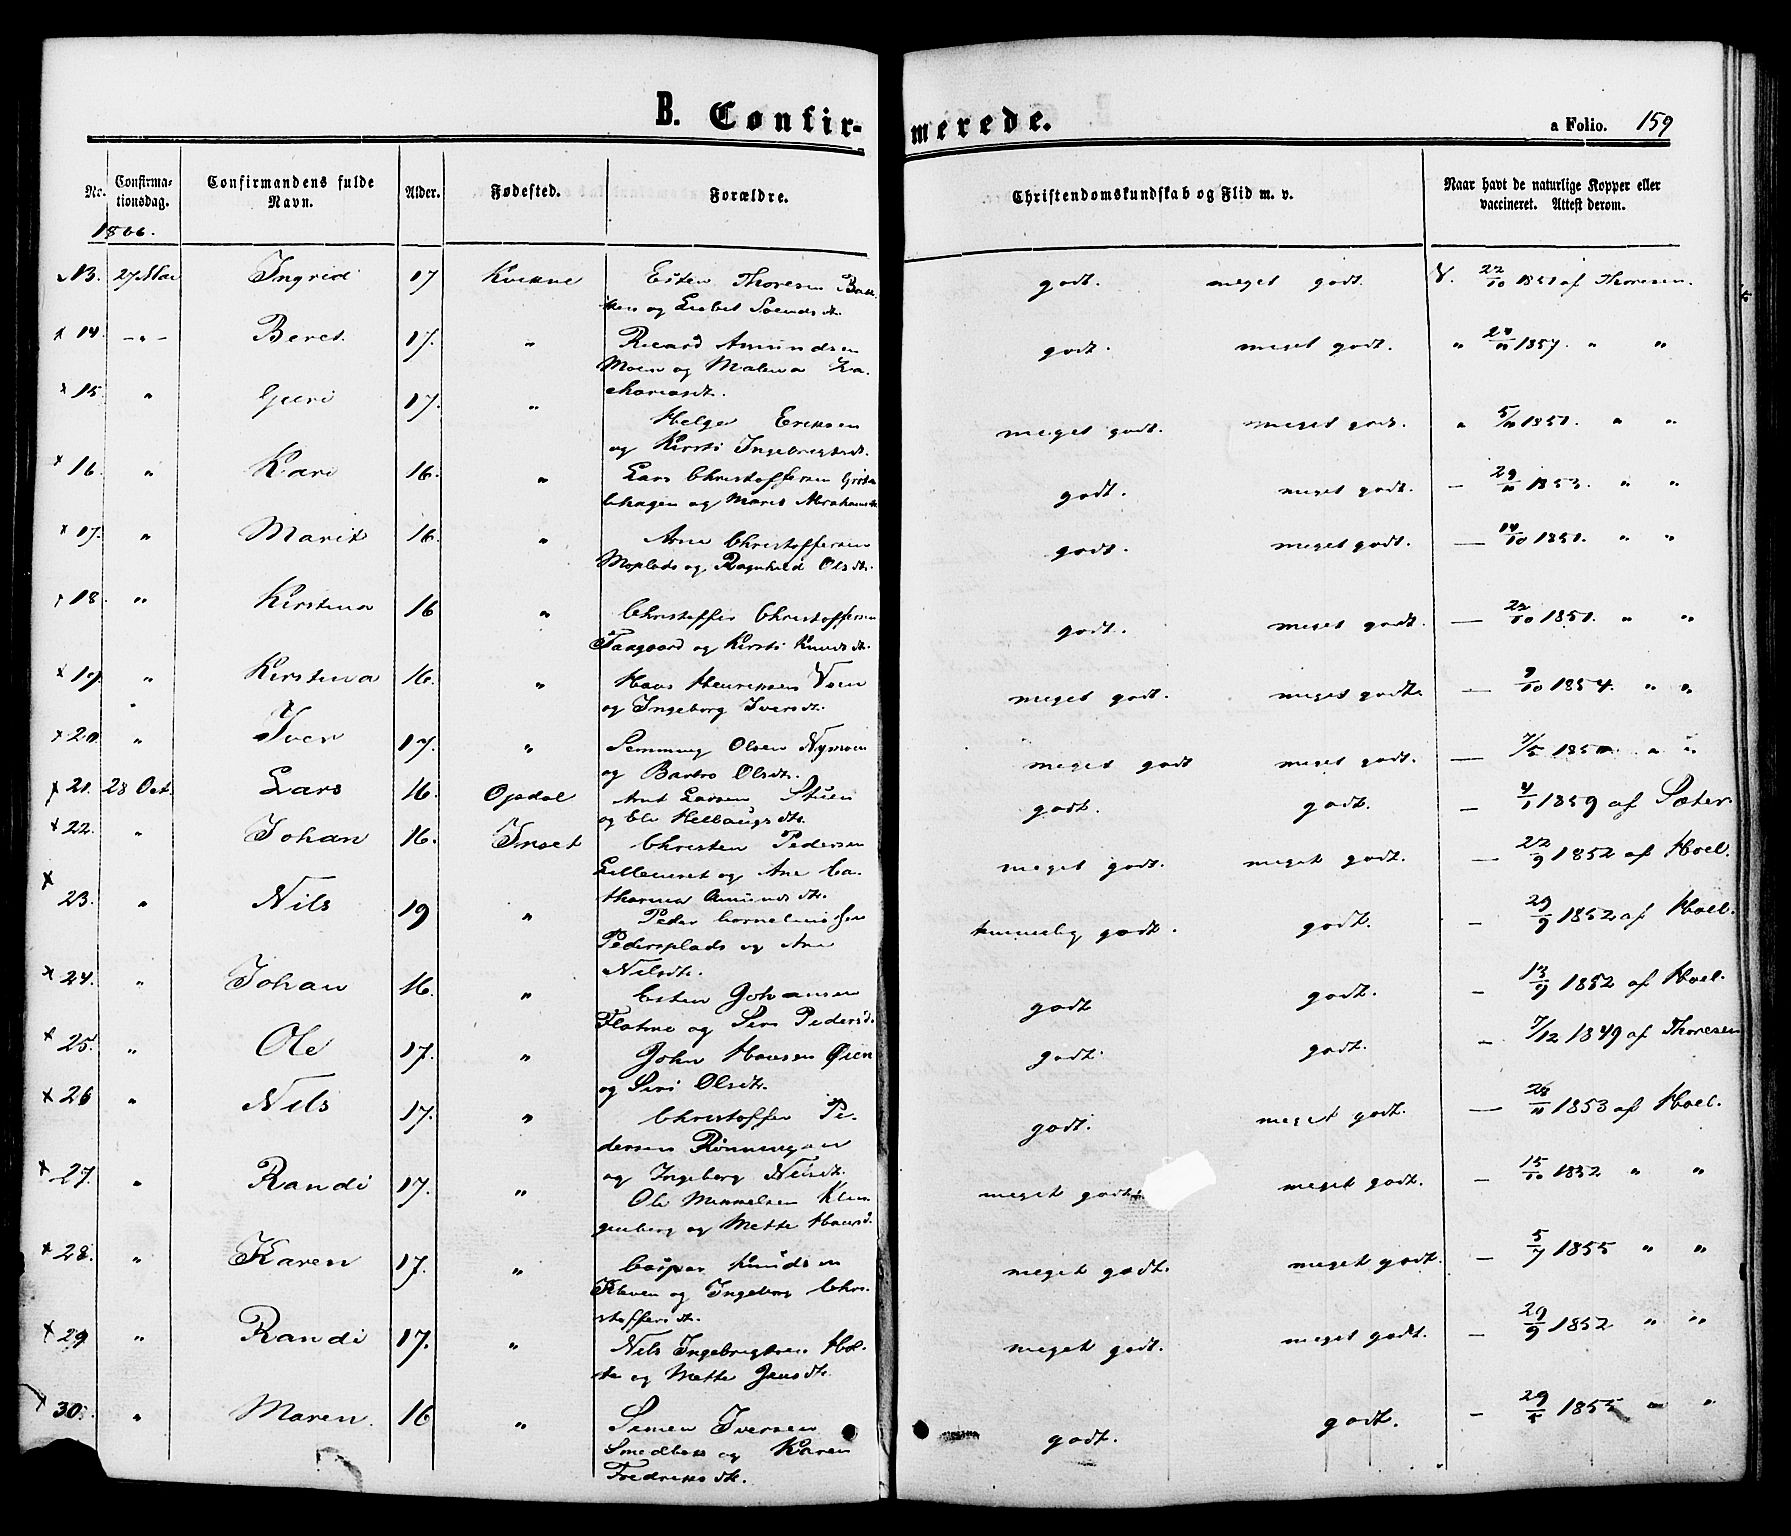 B. Confirmerede.
a Folio. 159
No. Confirmationsdag. Confirmandens fulde Navn. Alder. Fødested. Forældre. Christendomskundskab og Flid m. v. Naar havt de naturlige Kopper eller vaccineret. Attest derom.
1866.
13. 27 Mai Ingrid 17 Kvikne Esten Thoresen godt. meget godt. V. 22/10 1851 af Thoresen.
og Lisbet Svendsdt.
x 14. -"- Beret. 17. " Ricard Amundsen godt. meget godt. " 1857. " "
Moen og Malena Za-
chariasdt.
x 15. " Guri 17. " Helge Eriksen meget godt. meget godt. " 1851. " "
og Kirsti Ingebrigtsdt.
x 16. " Kari 16. " Lars Christoffersen godt. meget godt. — 1853. " "
og Marit Abrahamsdt.
x 17. " Marit 16. " Arne Christoffersen godt. meget godt. — 14/10 1851. " "
Moplads og Ragnhild Olsdt.
18. " Kirstina 16 " Christoffer Christoffersen godt. meget godt. — 22/10 1851. " "
Taagaard og Kirsti Knudsdt.
x 19 " Kirstina 16. " Hans Henriksen Veen meget godt. meget godt. — 9/10 1854. " "
og Ingeborg Iversdt.
x 20 " Iver 17. " Semming Olsen Nymoen meget godt meget godt. — 7/5 " "
og Barbro Olsdt.
x 21. 28 Oct. Lars 16. Opdal Arnt Larsen Stuen godt. godt. — 1859 af Sæter
og Eli
x 22. " Johan 16. Inset Christen Pedersen meget godt. meget godt. — 22/9 1852 af Hoel.
Lilleveret og Ane Ca-
tharina Amundsdt.
x 23. " Nils 19 " Peder Corneliussen temmelig godt. godt. — 29/9 1852 af Hoel.
Pedersplads og Ane
Nilsdt.
x 24. " Johan 16. " Esten Johansen godt godt. — 13/9 1852 af Hoel.
og Siri Pedersd.
x 25. " Ole 17. " John Hansen Øien godt. godt. — 7/12 1849 af Thoresen
og Siri Olsdt.
x 26 " Nils 17. " Christoffer Pe- godt. meget godt. — 1853 af Hoel.
dersen Rønningen
og Ingeborg Nilsdt.
x 27. " Randi 17. " Ole Mikkelsen Klin- meget godt. meget godt. — 15/10 1852 " "
genberg og Mette Hansd.
x 28. " Karen 17. " Casper Knudsen meget godt. meget godt. — 5/7 1855 " "
Kleven og Ingeborg Chri-
stoffersdt.
x 29 " Randi 17. " Nils Ingebrigtsen Hol- meget godt. meget godt. — 29/9 1852 " "
te og Mette Jensdt.
x 30. " Maren. 16 " Simen Iversen godt. godt. — 29/5 1855 " "
Smedbak og Karen
Fredriksdt.